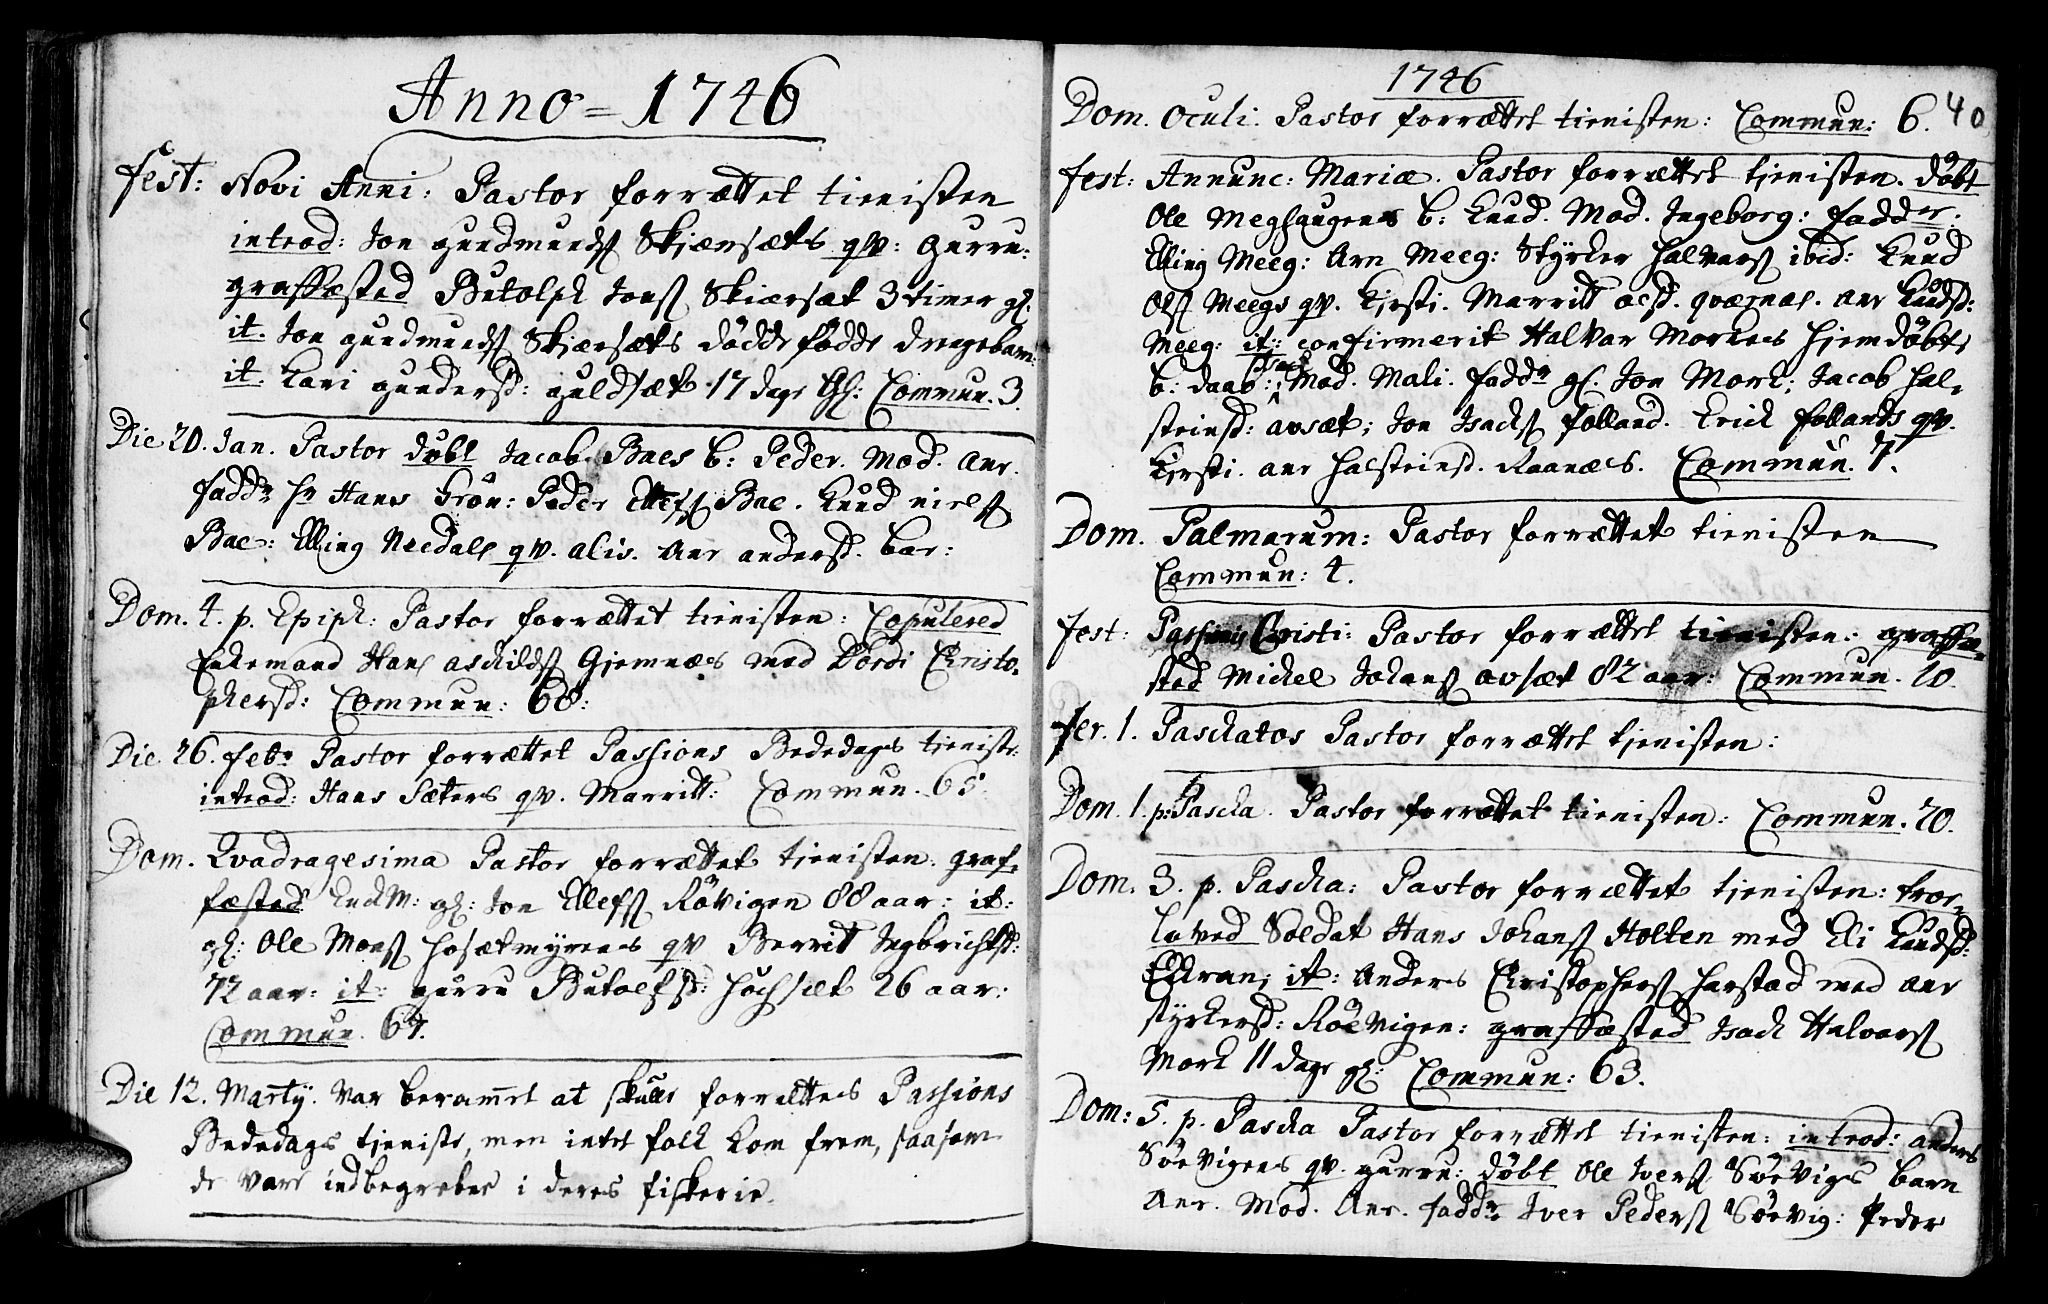 Anno = 1746
Fest: Novi Anni: Pastor forrættet tienisten
introd: Jon Gundmunds Skjærsæts qv: Gurru:
graffæsted Butolph Jons Skiærsæt 3 timer gl:
it. Jon Gundmunds Skjærsæts dödde födde drengebarn:
it. Kari Gundersd: Guldsæt 17 dage Gl: Commun. 3.
Die 20. Jan. Pastor döbt Jacob Baes b: Peder. Mod. Ane.
Faddr Hr Hans Grön: Peder Ellefs Bae. Knud niels
Bae: Elling Needals qv. alis. Ane andersd. bae:
Dom. 4. p. Epiph: Pastor forrættet tienisten: Copulered
Enkemand Hans aschilds Gjemnæs med Dordi Christo-
phersd: Commun: 68:
Die 26. Febr Pastor forrættet Passions Bededags tieniste:
introd: Hans Sæters qv. Marritt: Commun. 65.
Dom. Qvadragesima Pastor forrættet tjenisten: graf-
fæsted gl: Jon Ellefs Rövigen 88 aar: it:
gl: Ole Mons Hosætmyrens qv Berritt Ingbrichtsd:
72 aar: it: Gurru Butolfsd: Hochsæt 26 aar:
Commun. 67.
Die 12. Martij. Var beramet at skulle forrættes Passions
Bededags tjeniste, men intet folk kom frem, saasom
de vare indbegrebne i deres fiskerie.
1746
40
Dom. Oculi. Pastor forrættet tienisten: Commun: 6.
Fest: Annunc: Mariæ. Pastor forrættet tjenisten. döbt
Ole Meghaugens b: Knud. Mod. Ingeborg: Fadder:
Elling Meeg: Arn Meeg: Styrker Halvars ibid: Knud
Ols Meegs qv. Kjrsti. Marritt olsd. qværnæs. Ane Knudsd:
Meeg: it: confirmerit Halvar Morkes Hjemdöbte
b: daab: Isach Mod. Mali. Faddr gl. Jon Mork; Jacob Hal-
steinsd: avsæt; Jon Isachs Folland. Erich Follands qv.
Kjrsti. ane Halsteinsd. Raanæs. Commun. 7.
Dom. Palmarum: Pastor forrættet tienisten
Commun: 4.
Fest: Passionis Christi: Pastor forrættet tienisten: graffæ-
sted Michel Johans avsæt 82 aar: Commun. 10.
Fer. 1. Paschatos Pastor forrættet tjenisten:
Dom. 1. p: Pascha. Pastor forrættet tienisten: Commun. 20.
Dom. 3. p. Pascha: Pastor forrættet tjenisten: troe-
loved Soldat Hans Johans Holten med Eli Knudsd:
Eldran; it: Anders Christophers Harstad med Ane
styrkersd: Röevigen: graffæsted Isach Halvars
Mork 11 dage gl: Commun: 63.
Dom: 5. p. Pascha Pastor forrættet tienisten: introd: anders
Söevigens qv. Gurru: döbt Ole Ivers Söevigs barn
Ane. Mod. Ane. Faddr Iver Peders Söevig: Peder